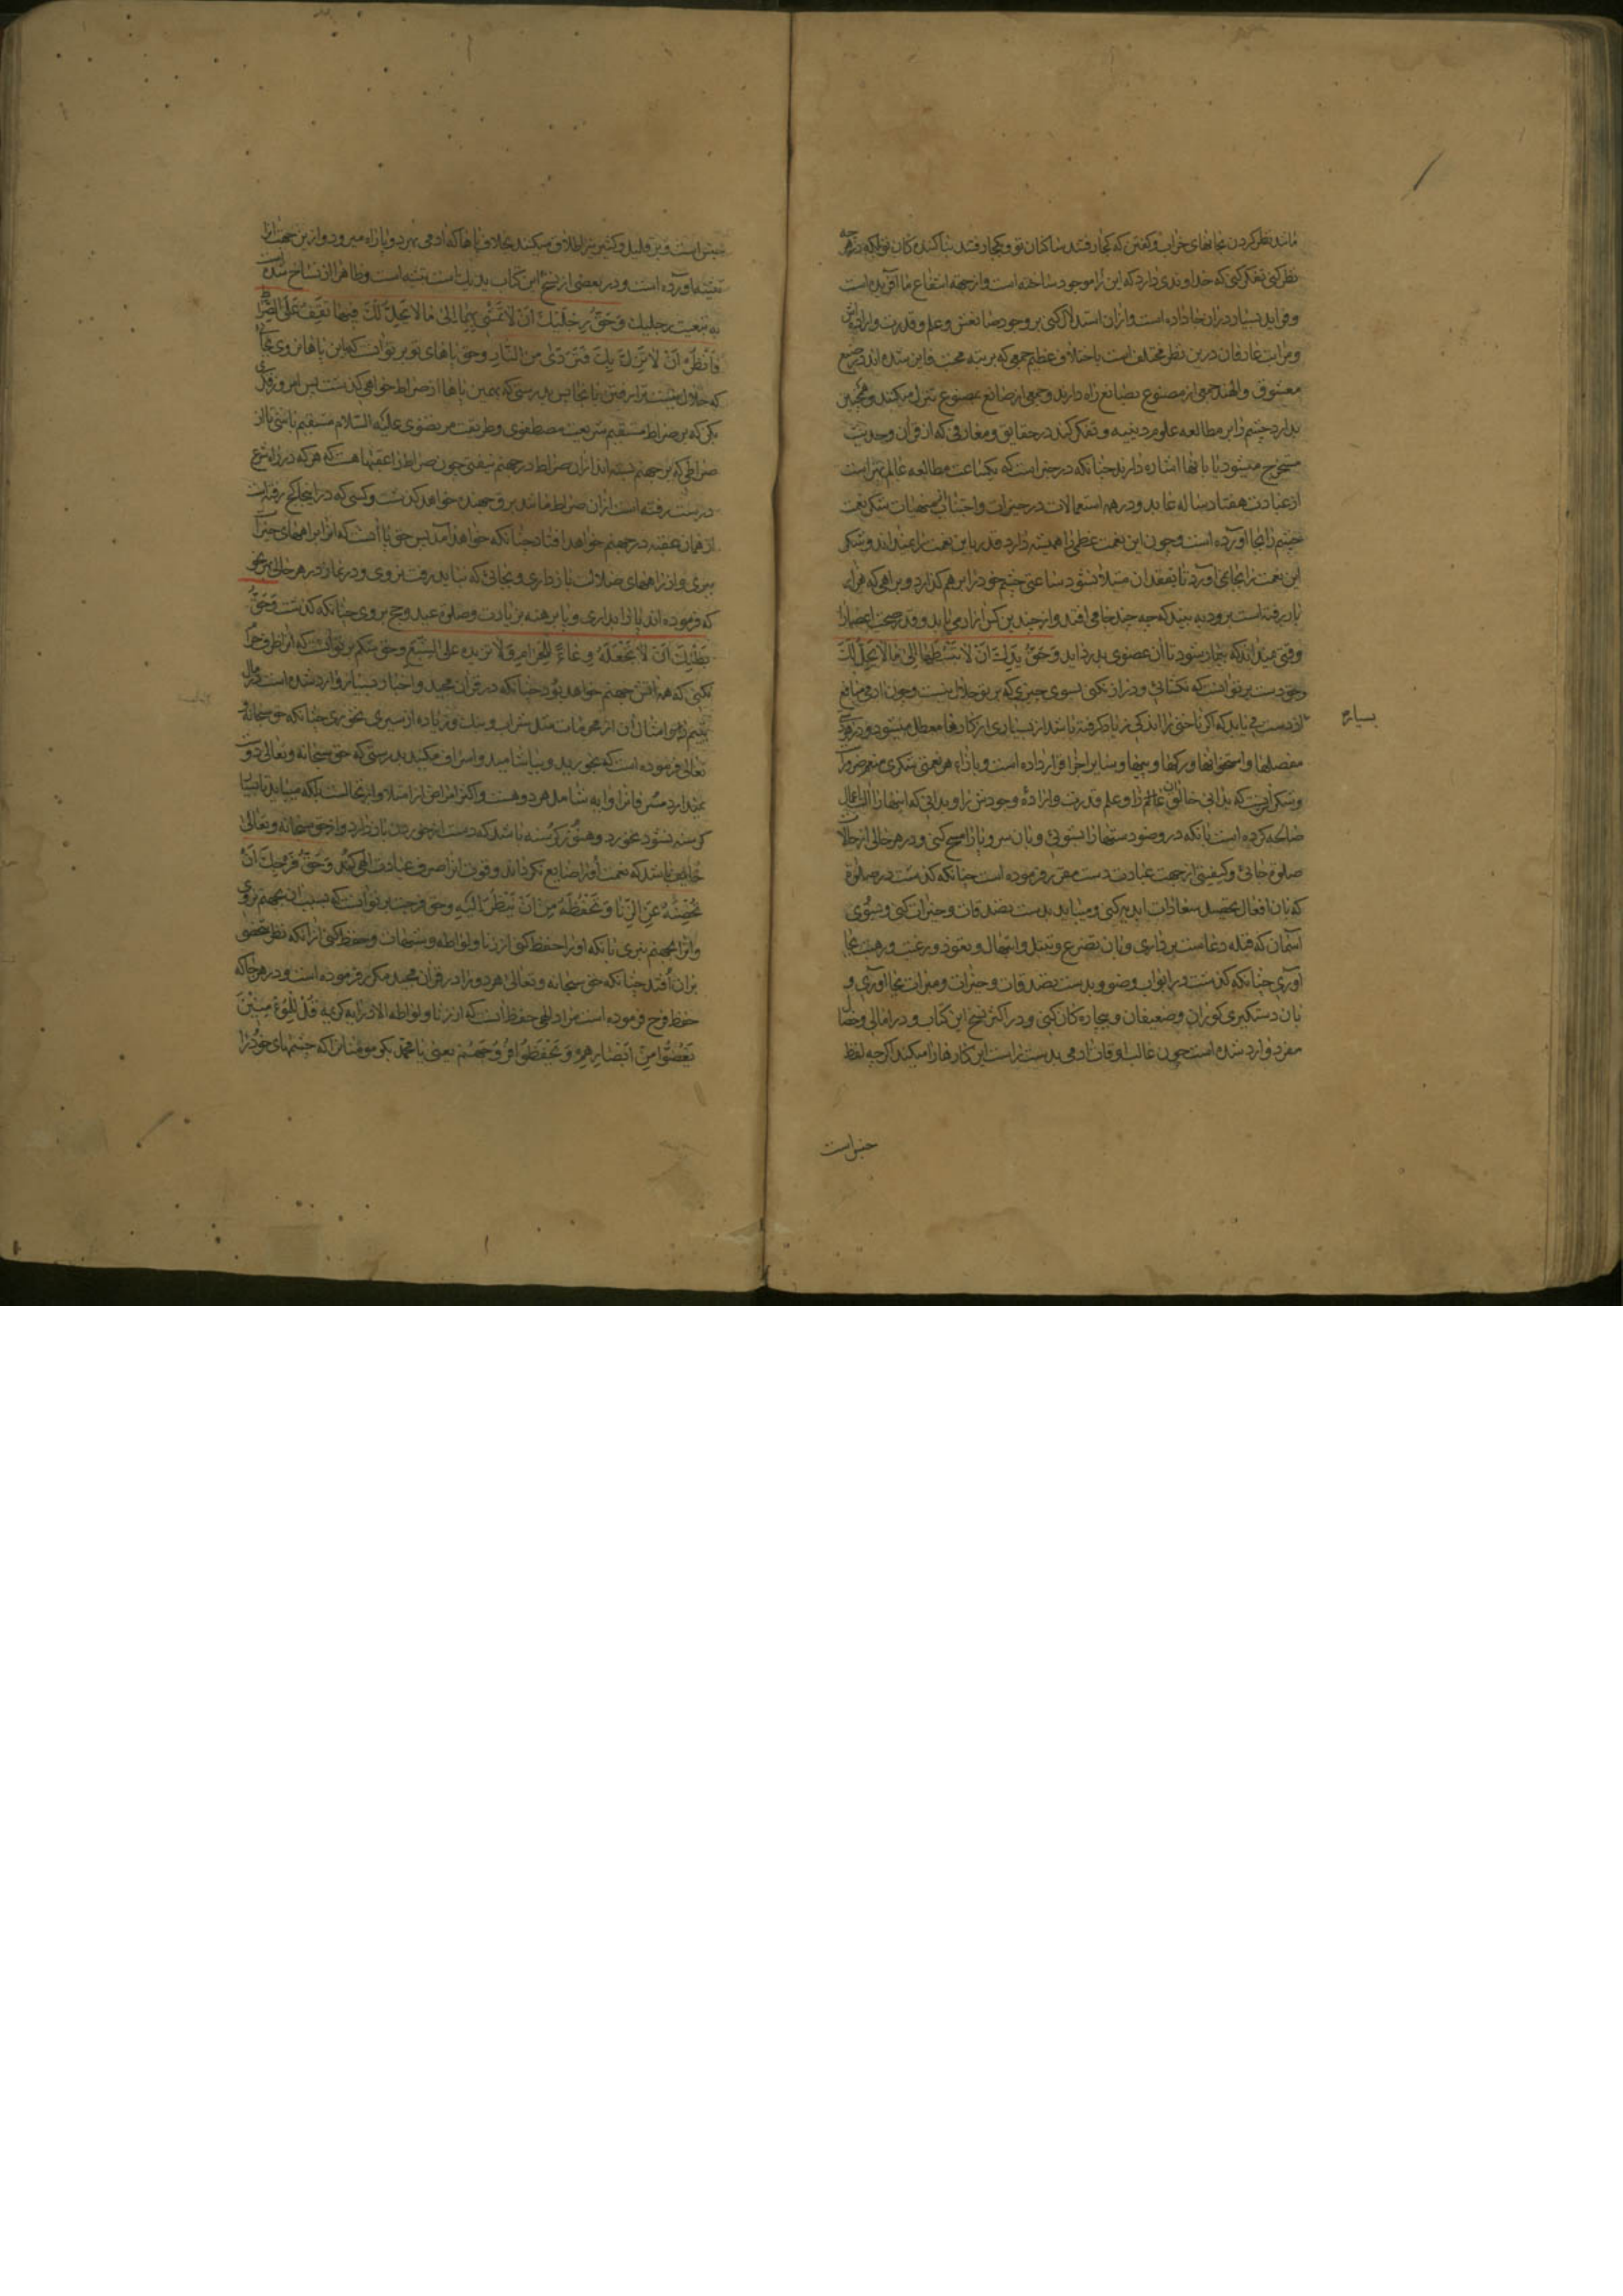 مانند نظر کردن بجاهای خراب و گفتن که کجا رفتند ساکنان تو و کجا رفتند بنا کننده کان تو بلکه در هر چه
نظر کنی تفکر کنی که خداوندی دارد که این را موجود ساخته است و از جهة انتفاع ما آفریده است
و فواید بسیار در ان جا داده است و از ان استدلال کنی بر وجود صانعش و علم و قدرت و اراده اش
و مراتب عارفان درین نظر مختلف است باختلاف عظیم جمعی که برتبه محبت فایز شده اند در صنع
معشوق والهند جمعی از مصنوع بصانع راه دارند و جمعی از صانع بمصنوع تنزل میکنند و همچنین
بدارد چشم را بر مطالعه علوم دینیه و تفکر کند در حقایق و معارفی که از قرآن و حدیث
مستخرج میشود یا بانها اشاره دارند چنانکه در خبر است که یکساعت مطالعه عالم بهتر است
از عبادت هفتاد ساله عابد و در همه استعمالات در خیرات و اجتناب از منهیات شکر نعمت
چشم را بجا آورده است و چون این نعمت عظمی را همیشه دارد قدر این نعمت را نمیداند و شکر
این نعمت را بجا نمی آورد تا بفقدان مبتلا نشود ساعتی چشم خود را بر هم گذارد و براهی که هزار
بار رفته است برود به بیند که چه چند جا می افتد و از چندین کس آزار می یابد و قدر صحت اعضا را
وقتی میداند که بیمار شود تا ان عضوی بدرد اید وَحَقُّ یَدِكَ اَنْ لا تَبْسُطَهَا اِلیٰ مَا لا یَحِلُّ لَكَ
و حق دست بر تو انست که نگشائی و دراز نکنی بسوی چیزی که بر تو حلال نیست و چون آدمی منافع
از دست می یابد که اگر ناخنی را اندکی زیاد گرفته باشد از بسیاری از کارها معطل میشود و در هر یک
بسیار
مفصلها و استخوانها و رگها و پیها و سایر اجزا قرار داده است و بازاء هر نعمتی شکری منعم ضرور است
و شکر آن نست که بدانی خالق عالم را و علم و قدرت و ارادهٔ وجودش را و بدانی که اینها را الت اعمال
صالحه کرده است بانکه در وضو دستها را بشوئی و بان سر و پا را مسح کنی و در هر حالی از حالات
صلوة جائی و کیفیتی از جهت عبادت دست مقرر فرموده است چنانکه گذشت در صلوة
که بان افعال تحصیل سعادات ابدیه کنی و میباید بدست بصدقات و خیرات کنی و بسوی
آسمان که قبله دعاست برداری و بان تضرع و تبتل و ابتهال و تعوذ و رغبت و رهبت بجا
آوری چنانکه گذشت در ابواب وضو و بدست بصدقات و خیرات و مبرات بجا آوری و
بان دستگیری کوران و ضعیفان و بیچاره کان کنی و در اکثر نسخ این کتاب و در امالی و خصال
مفرد وارد شده است چون غالب اوقات ادمی بدست راست این کارها را میکند اگر چه لفظ
جنس است
جنس است و بر قلیل و کثیر نیز اطلاق میکنند بخلاف پاها که ادمی بهر دو پا راه میرود و از ین جهت انرا
تثنیه اورده است و در بعضی از نسخ این کتاب یدیك است بتثنیه است و ظاهرا از نساخ شده است
به تبعیت رجلیك وَحَقُّ رِجْلَیْكَ اَنْ لا تَمْشِیَ بِهِمَا اِلیٰ مَا لا یَحِلُّ لَكَ فَبِهِمَا تَقِفُ عَلَی الصِّرَاطِ
فَانْظُرْ اَنْ لا تَزِلَّ بِكَ فَتَرَدّیٰ مِنَ النَّارِ و حق پاهای تو بر تو انست که باین پاها نروی بجائی
که حلال نیست ترا رفتن بانجا پس بدرستی که بهمین پاها از صراط خواهی گذشت پس امروز فکری
بکن که بر صراط مستقیم شریعت مصطفوی و طریقت مرتضوی علیه السلام مستقیم باشی تا از
صراطی که بر جهنم بسته اند از ان صراط در جهنم نیفتی چون صراط را عقبها هست که هر که در راه شرع
درست رفته است از ان صراط مانند برق جهنده خواهد گذشت و کسی که در اینجا کج رفته است
از همان عقبه در جهنم خواهد افتاد چنانکه خواهد آمد پس حق پا آنست که انرا براههای خیر
ببری و از راههای ضلالت باز داری و بجائی که نباید رفت نروی و در نماز در هر حالی بنحوی
که فرموده اند پا را بداری و پا برهنه بزیارت و صلوة عید و حج بروی چنانکه گذشت وَحَقُّ
بَطْنِكَ اَنْ لا تَجْعَلَهُ وِعَاءً لِلْحَرَامِ وَلا تَزِیدَهُ عَلَی الشِّبَعِ و حق شکم بر تو انست که انرا ظرف حرام
نکنی که همه اتش جهنم خواهد بود چنانکه در قرآن مجید و اخبار بسیار وارد شده است در مال
یتیم و امثال آن از محرمات مثل شراب و بنك و زیاده از سیری نخوری چنانکه حق سبحانه و
تعالی فرموده است که بخورید و بیاشامید و اسراف مکنید بدرستی که حق سبحانه و تعالی دوست
نمیدارد مسرفانرا و ایه شامل هر دو هست و اکثر امراض از امتلا و از تخالست بلکه میباید تا بسیار
گرسنه نشود نخورد و هنوز گرسنه باشد که دست از خوردن باز دارد و از حق سبحانه و تعالی
خایف باشد که نعمت او را ضایع نگرداند و قوت انرا صرف عبادت الهی کند وَحَقُّ فَرْجِكَ اَنْ
تُحْصِنَهُ عَنِ الزِّنَا وَتَحْفَظَهُ مِنْ اَنْ یُنْظَرَ اِلَیْهِ و حق فرجت بر تو انست که بسبب ان بجهنم نروی
و انرا بجهنم نبری بانکه او را حفظ کنی از زنا و لواطه و شبهات و حفظ کنی از آنکه نظر شخصی
بران افتد چنانکه حق سبحانه و تعالی هر دو را در قرآن مجید مکرر فرموده است و در هر جا که
حفظ فرج فرموده است مراد الهی حفظ آنست که از زنا و لواطه الا در ایه کریمه قُلْ لِلْمُؤْمِنِیْنَ
یَغُضُّوا مِنْ اَبْصَارِهِمْ وَ یَحْفَظُوا فُرُوجَهُمْ یعنی یا محمد بگو مومنانرا که چشمهای خود را